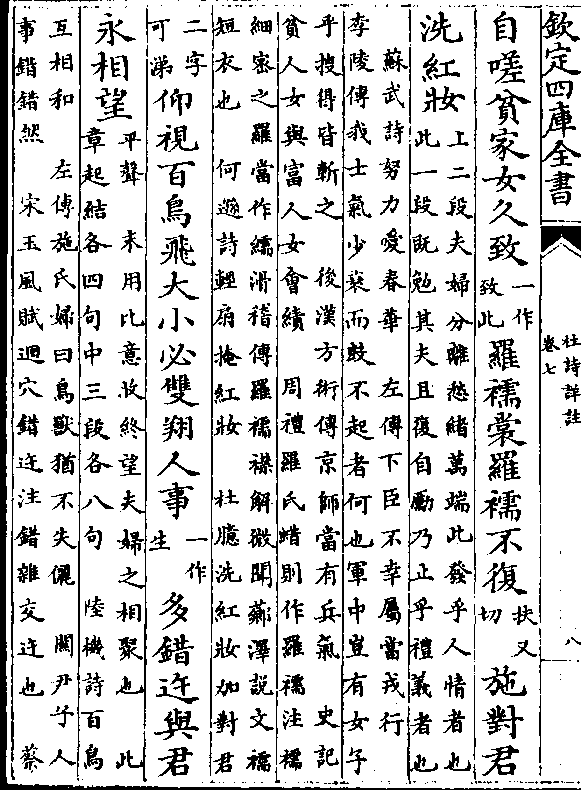 欽定四庫全書
杜詩詳註
卷七
八
自嗟貧家女久致
一作
致此
羅襦裳羅襦不復
扶又
切
施對君
洗紅妝
上二段夫婦分離愁緒萬端此發乎人情者也
此一段既勉其夫且復自勵乃止乎禮義者也
蘇武詩努力愛春華　左傳下臣不幸屬當戎行
李陵傳我士氣少衰而鼓不起者何也軍中豈有女子
乎搜得皆斬之　後漢方術傳京師當有兵氣　史記
貧人女與富人女會績　周禮羅氏蜡則作羅襦注襦
細密之羅當作繻滑稽傳羅襦襟解微聞薌澤說文襦
短衣也　何遜詩輕扇掩紅妝　杜臆洗紅妝加對君
二字
可涕
仰視百鳥飛大小必雙翔人事
一作
生
多錯迕與君
永相望
平聲　末用比意收終望夫婦之相聚也　此
章起結各四句中三段各八句　陸機詩百鳥
互相和　左傳施氏婦曰鳥獸猶不失儷　關尹子人
事錯錯然　宋玉風賦迴穴錯迕注錯雜交迕也　蔡